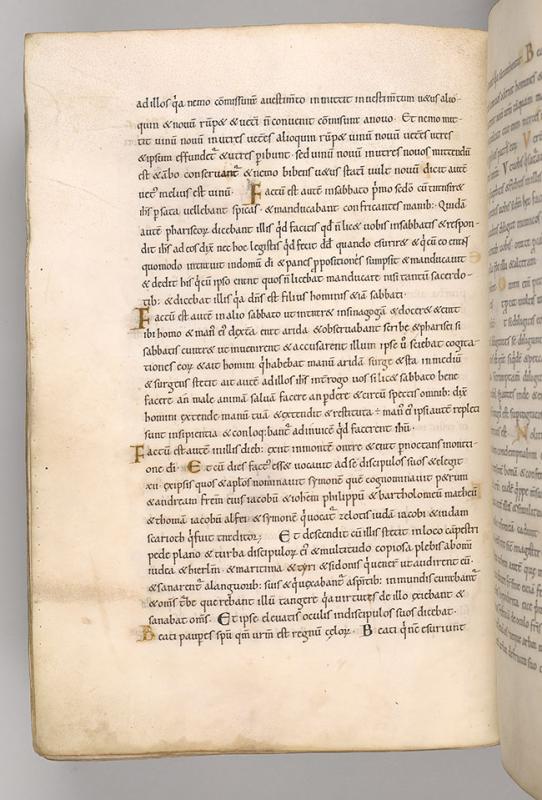 ad illos q̇a nemo cōmissurā a uestim̄to inmittit in uestim̄tum uetus alio
quin & nouū rūpit & ueti n̄ conuenit cōmisura a nouo · Et nemo mit
tit uinū nouū in utres uet̄es alioquin rūpit uinū nouū uet̄es utres
& ipsum effundet̄ & utres ꝑibunt · sed uinū nouū in utres nouos mittendū
est & ābo conseruant̄ & nemo bibens uetus statī uult nouū dicit autē
uet᷒ melius est uinū · Factū est autē in sabbato p̄mo cū t̄nsiret
ih̄s ꝑ sata uellebant spicas & manducabant confricantes manib; Quidā
autē pharisęor̨ dicebant illis qd̄ facitis qd̄ n̄ licet uobis in sabbatis & respon
dit ih̄s ad eos dix̄ nec hoc legistis qd̄ fecit dd̄ quando esuriret & q̇ cū eo erant
quomodo intrauit in domū dī & panes ꝓpositionēs sumpsit & manducauit
& dedit his q̇ cū ipso erant quos n̄ licebat manducare nisi tantū sacerdo
tib; & dicebat illis q̇a dn̄s est filius hominis etiā sabbati ·
Factū est autē in alio sabbato ut intraret in sinagogā & doceret & erat
ibi homo & man᷒ ei᷒ dext̄a erat arida & obseruabant scribę & pharisei si
sabbatis curaret ut inuenirent accusarent illum ipse u̇ sciebat cogita
tiones eor̨ & ait homini q̇ habebat manū aridā surge & sta in mediū
& surgens stetit ait autē ad illos ih̄s int̄rogo uos si licet sabbato bene
facere an male animā saluā facere an ꝑdere & circūspectis omnib; dix̄
homini extende manū tuā & extendit & restituta ÷ man᷒ ei᷒ ipsi autē repleti
sunt insipientia & conloq̇bant̄ adinuicē qd̄ facerent ih̄u ·
Factū est autē in illis dieb; exiit in montē orare & erat pernoctans in orati
one dī · Et cū dies fact᷒ esset uocauit ad se discipulos suos & elegit
xii ex ipsis quos & apłos nominauit symonē quē cognominauit petrum
& andream frēm ei᷒ iacobū & ioh̄em philippū & bartholomeū matheū
& thomā iacobū alfei & symonē q̇ uocat̄ zelotis iudā iacobi & iudam
scarioth q̇ fuit traditor; Et descendit cū illis stetit in loco cāpestri
pede plano & turba discipulor̨ ei᷒ & multitudo copiosa plebis ab omni
iudea & hierl̄m & maritima & tyri & sidonis q̇ uener̄t ut audirent eū ·
& sanarent̄ a languorib; suis & q̇ uexabant̄ a sp̄itib; inmundis curabant̄
& om̄s tūbę querebant illū tangere q̇a uirtus de illo exiebat &
sanabat om̄s · Et ipse eleuatis oculis in discipulos suos dicebat ·
Beati pauꝑes sp̄u qm̄ ur̄m est regnū cęlor̨ · Beati q̇ nc̄ esuriunt